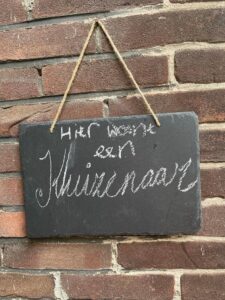 Hier woont
een
Khuizenaar